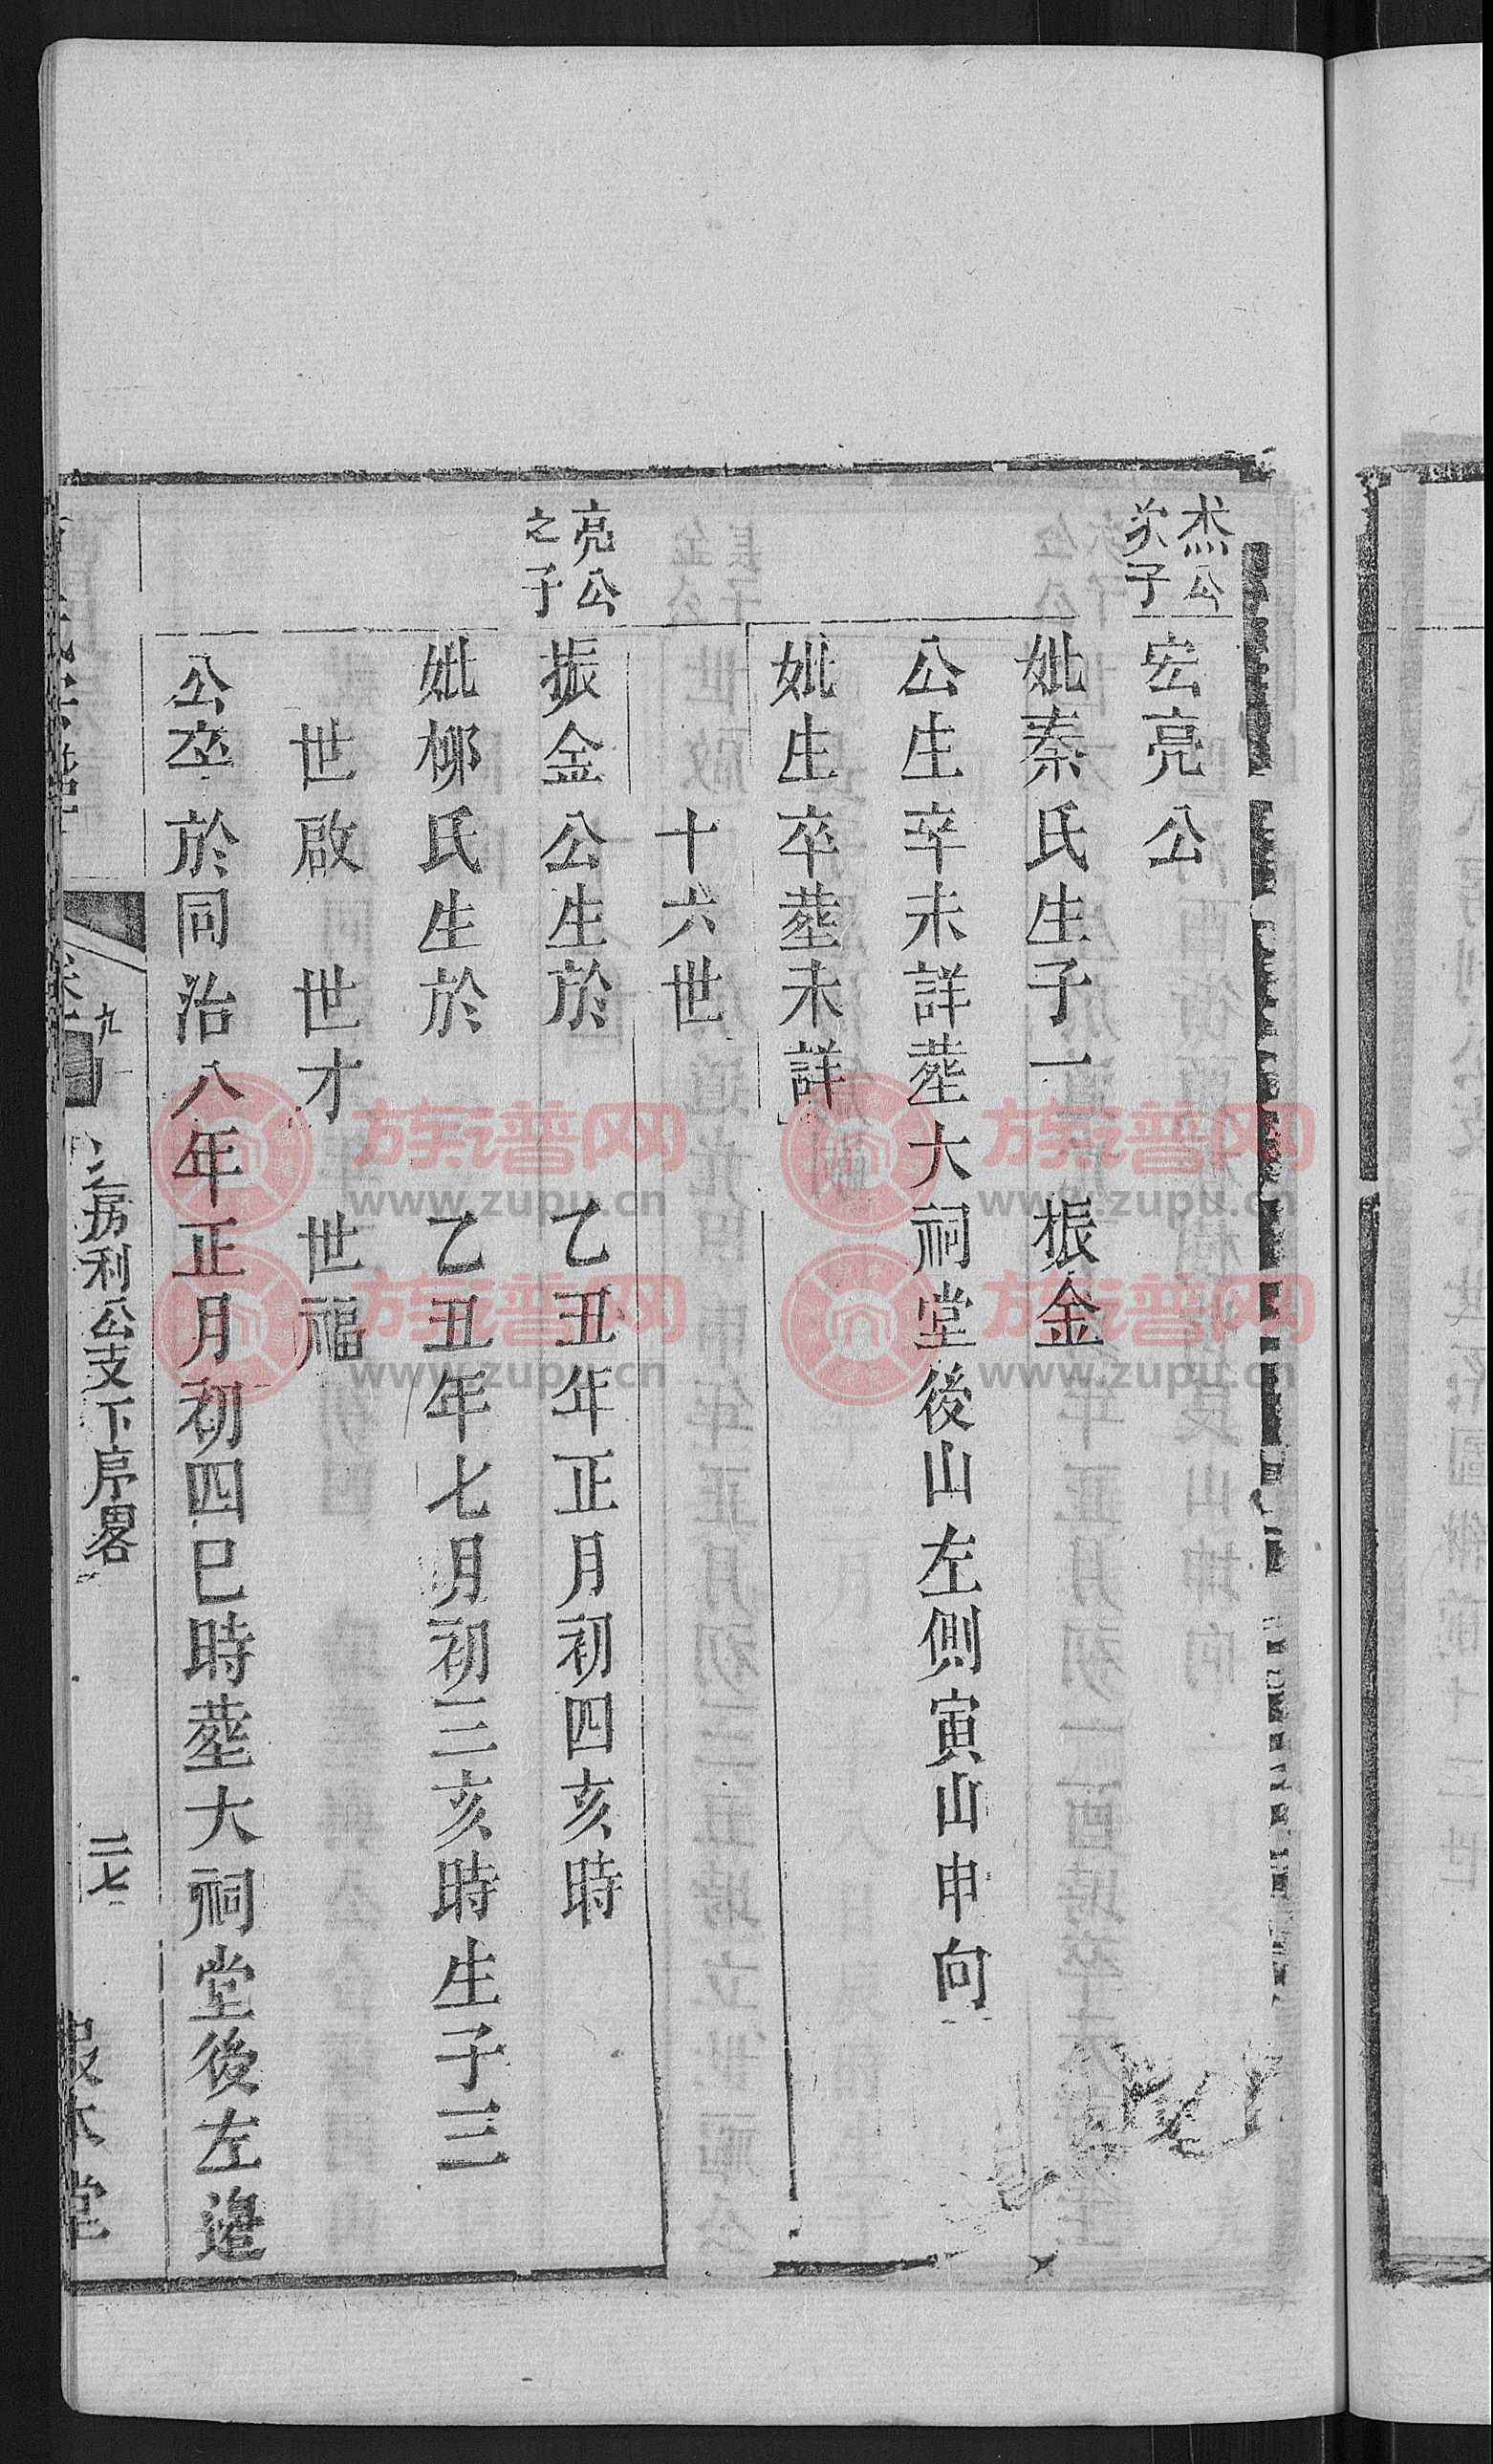 杰公
次子
宏亮公
妣秦氏生子一 振金
公生卒未詳塟大祠堂後山左側寅山申向
妣生卒塟未詳
十六世
亮公
之子
振金公生於 乙丑年正月初四亥時
妣柳氏生於 乙丑年七月初三亥時生子三
世啟 世才 世福
公卒於同治八年正月初四巳時塟大祠堂後左邉
九
三房利公支下序畧
二七
報本堂
族谱网
www.zupu.cn
族谱网
www.zupu.cn
族谱网
www.zupu.cn
族谱网
www.zupu.cn